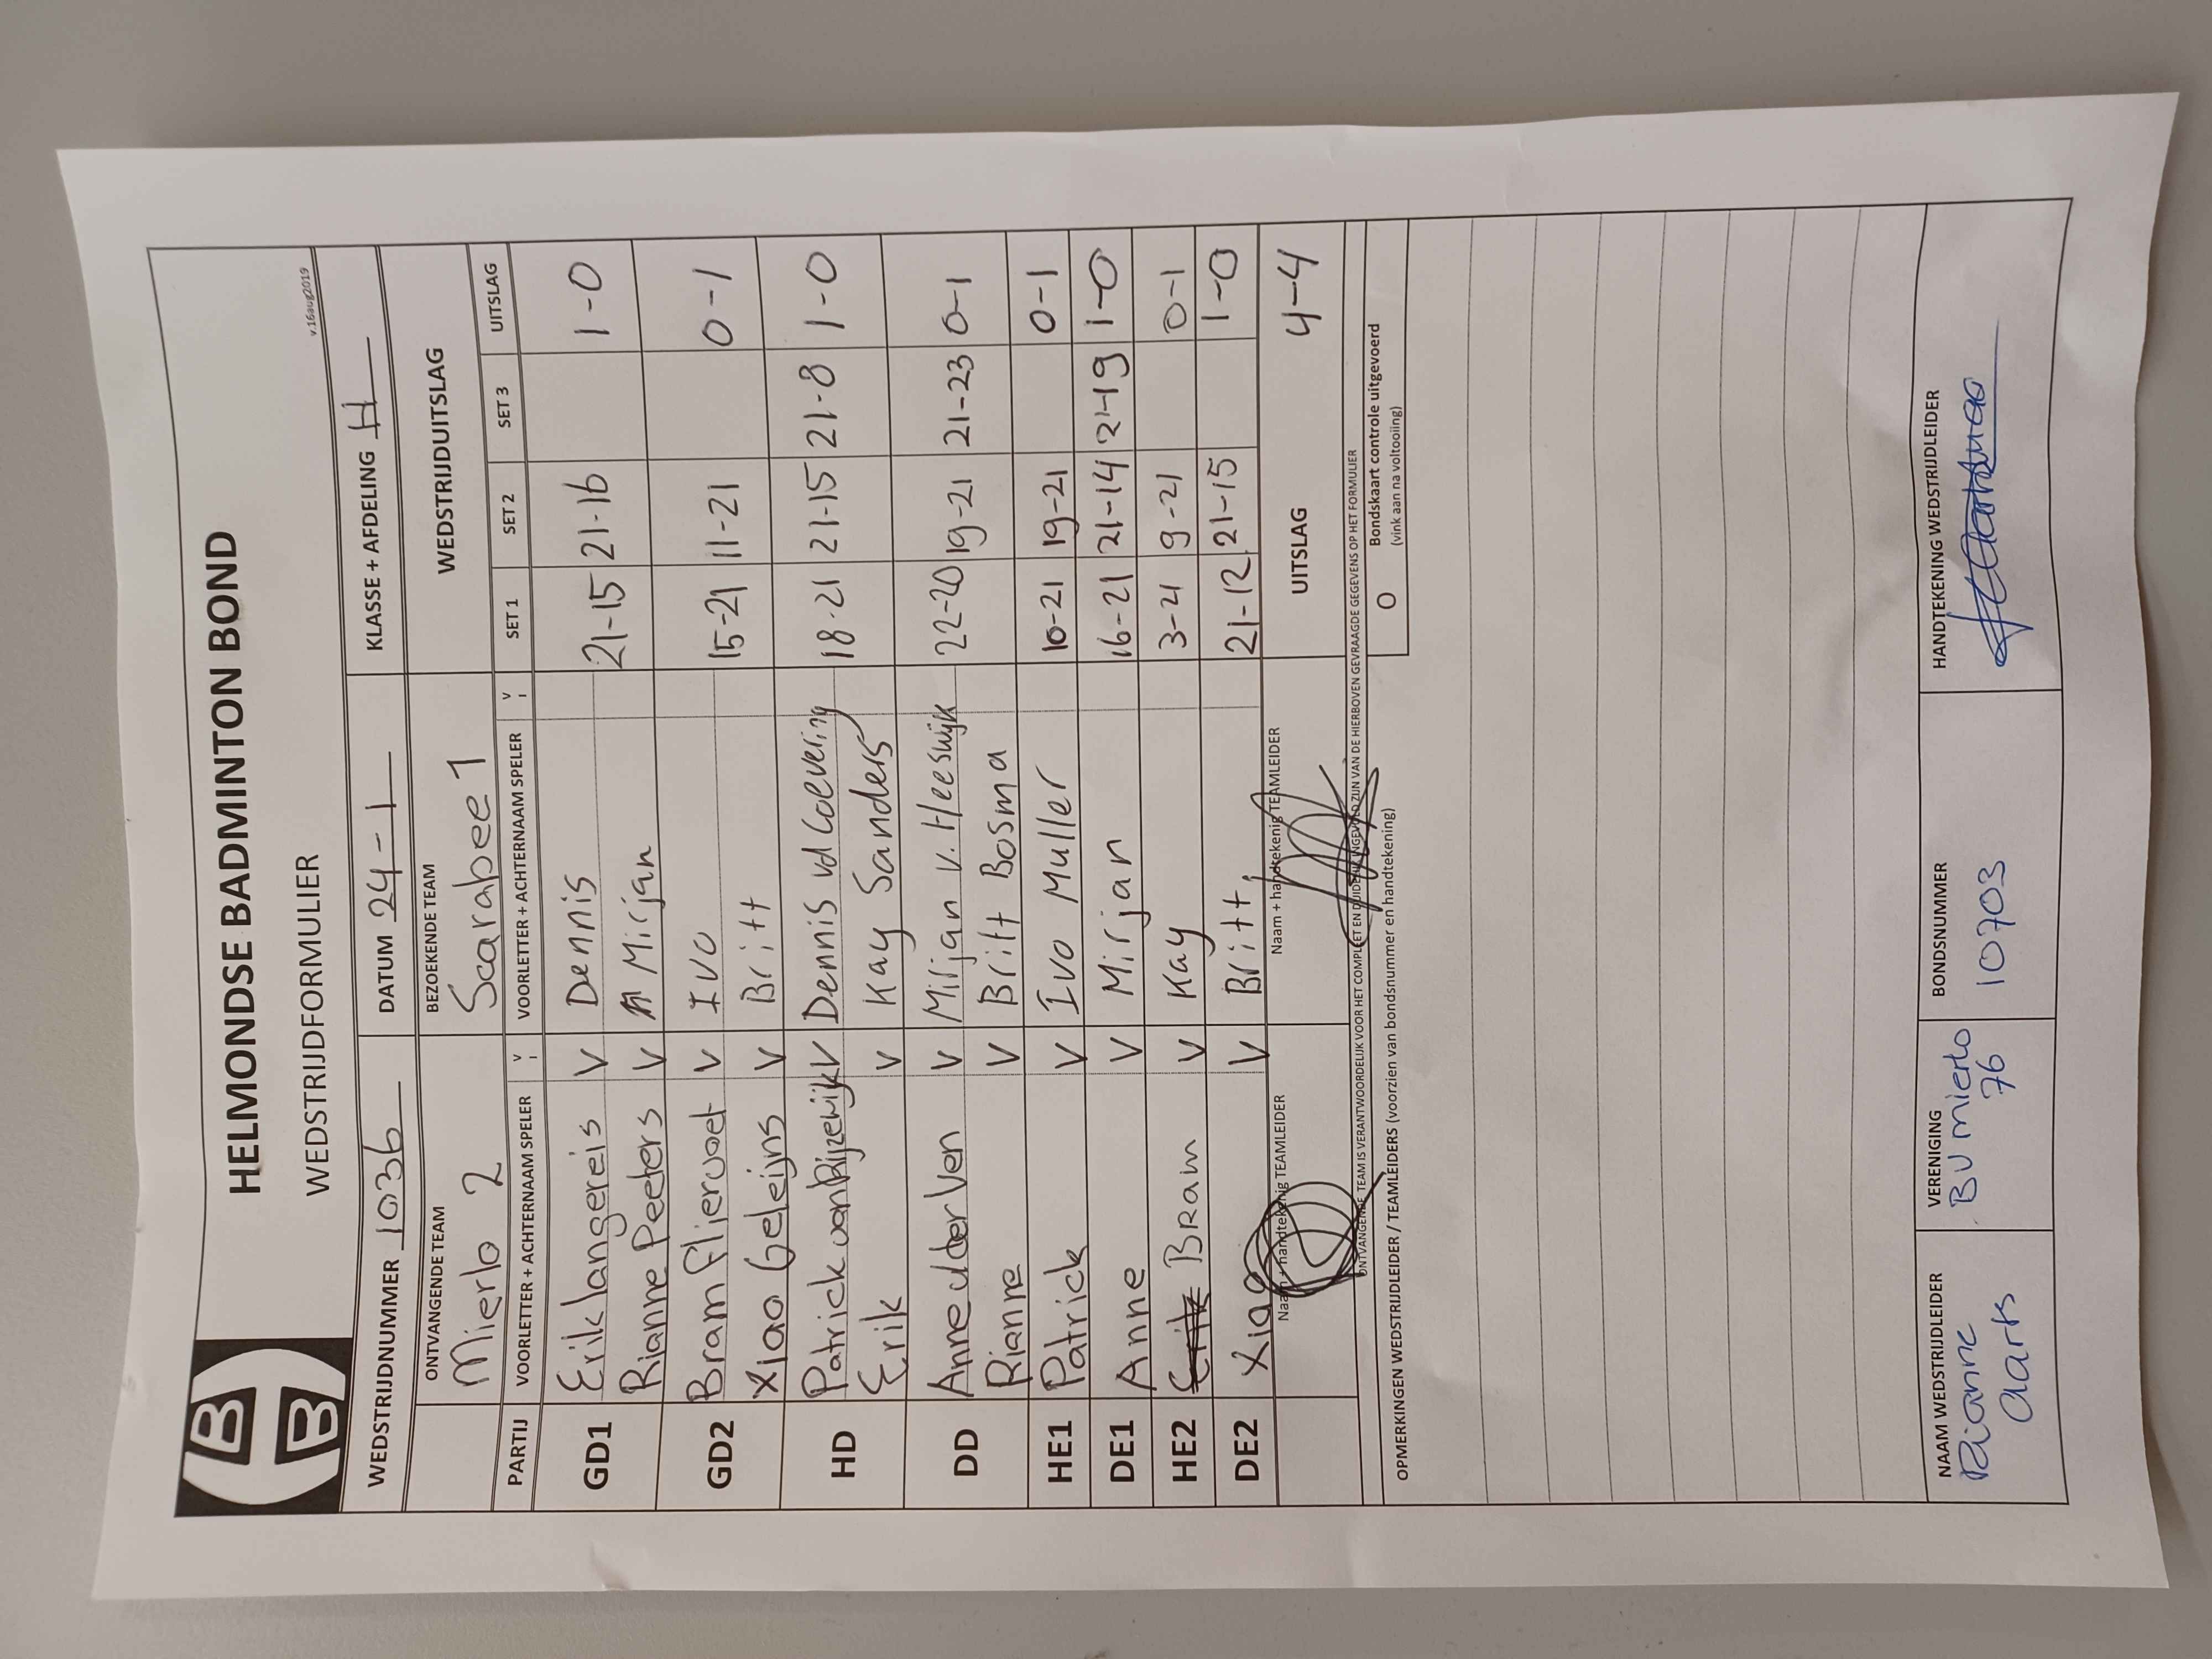 B
B
HELMONDSE BADMINTON BOND
WEDSTRIJDFORMULIER
v.16aug2019
WEDSTRIJDNUMMER 1036 DATUM 24-1 KLASSE + AFDELING H
ONTVANGENDE TEAM BEZOEKENDE TEAM WEDSTRIJDUITSLAG
Mierlo 2 Scarabee 1
PARTIJ VOORLETTER + ACHTERNAAM SPELER V I VOORLETTER + ACHTERNAAM SPELER V I SET 1 SET 2 SET 3 UITSLAG
GD1 Erik langereis V Dennis 21-15 21-16 1-0
Rianne Peeters V Mirjan
GD2 Bram fliervoet V Ivo 15-21 11-21 0-1
Xiao Geleijns V Britt
HD Patrick van Rijzewijk V Dennis vd Coevering 18-21 21-15 21-8 1-0
Erik V Kay Sanders
DD Anne v der Ven V Mirjan v. Heeswijk 22-20 19-21 21-23 0-1
Rianne V Britt Bosma
HE1 Patrick V Ivo Muller 10-21 19-21 0-1
DE1 Anne V Mirjan 16-21 21-14 21-19 1-0
HE2 Erik Bram V Kay 3-21 9-21 0-1
DE2 Xiao V Britt 21-12 21-15 1-0
Naam + handtekenig TEAMLEIDER Naam + handtekenig TEAMLEIDER UITSLAG 4-4
ONTVANGENDE TEAM IS VERANTWOORDELIJK VOOR HET COMPLEET EN DUIDELIJK INGEVULD ZIJN VAN DE HIERBOVEN GEVRAAGDE GEGEVENS OP HET FORMULIER
OPMERKINGEN WEDSTRIJDLEIDER / TEAMLEIDERS (voorzien van bondsnummer en handtekening)
O Bondskaart controle uitgevoerd
(vink aan na voltooiing)
NAAM WEDSTRIJDLEIDER VERENIGING BONDSNUMMER HANDTEKENING WEDSTRIJDLEIDER
Rianne BV mierlo 10703
Aarts 76